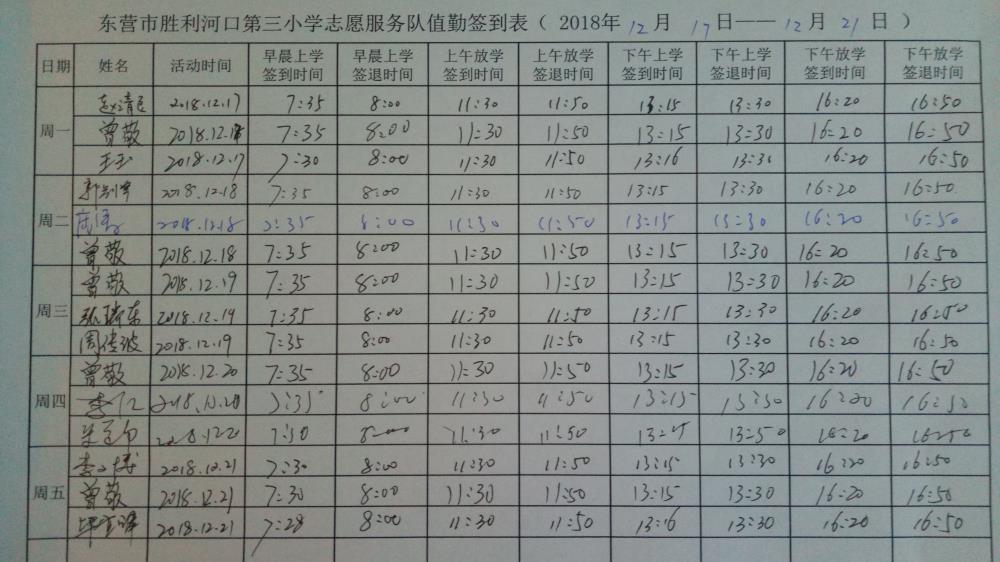 东营市胜利河口第三小学志愿服务队值勤签到表（ 2018年 12 月 17 日—— 12 月 21 日 ）
日期 姓名 活动时间 早晨上学签到时间 早晨上学签退时间 上午放学签到时间 上午放学签退时间 下午上学签到时间 下午上学签退时间 下午放学签到时间 下午放学签退时间
周一 2018.12.17 7:35 8:00 11:30 11:50 13:15 13:30 16:20 16:50
曾敬 2018.12.18 7:35 8:00 11:30 11:50 13:15 13:30 16:20 16:50
王玉 2018.12.17 7:30 8:00 11:30 11:50 13:16 13:31 16:20 16:50
周二 2018.12.18 7:35 8:00 11:30 11:50 13:15 13:30 16:20 16:50
2018.12.18 7:35 8:00 11:30 11:50 13:15 13:30 16:20 16:50
曾敬 2018.12.18 7:35 8:00 11:30 11:50 13:15 13:30 16:20 16:50
周三 曾敬 2018.12.19 7:35 8:00 11:30 11:50 13:15 13:30 16:20 16:50
2018.12.19 7:35 8:00 11:30 11:50 13:15 13:30 16:20 16:50
2018.12.19 7:35 8:00 11:30 11:50 13:15 13:30 16:20 16:50
周四 曾敬 2018.12.20 7:35 8:00 11:30 11:50 13:15 13:30 16:20 16:50
2018.12.20 7:35 8:00 11:30 11:50 13:15 13:30 16:20 16:50
2018.12.20 7:30 8:00 11:30 11:50 13:15 13:50 16:20 16:50
周五 2018.12.21 7:30 8:00 11:30 11:50 13:15 13:30 16:20 16:50
曾敬 2018.12.21 7:30 8:00 11:30 11:50 13:15 13:30 16:20 16:50
2018.12.21 7:28 8:00 11:30 11:50 13:16 13:30 16:20 16:50